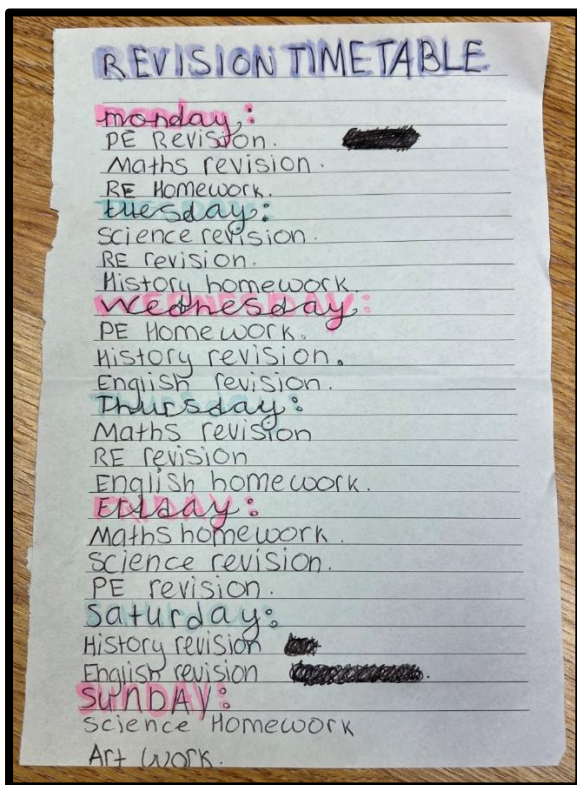 REVISION TIMETABLE
monday:
PE Revision.
Maths revision.
RE Homework.
tuesday:
Science revision.
RE revision.
History homework.
Wednesday:
PE Homework.
History revision.
English revision.
Thursday:
Maths revision
RE revision
English homework.
Friday:
Maths homework.
Science revision.
PE revision.
Saturday:
History revision
English revision
SUNDAY:
Science Homework
Art work.